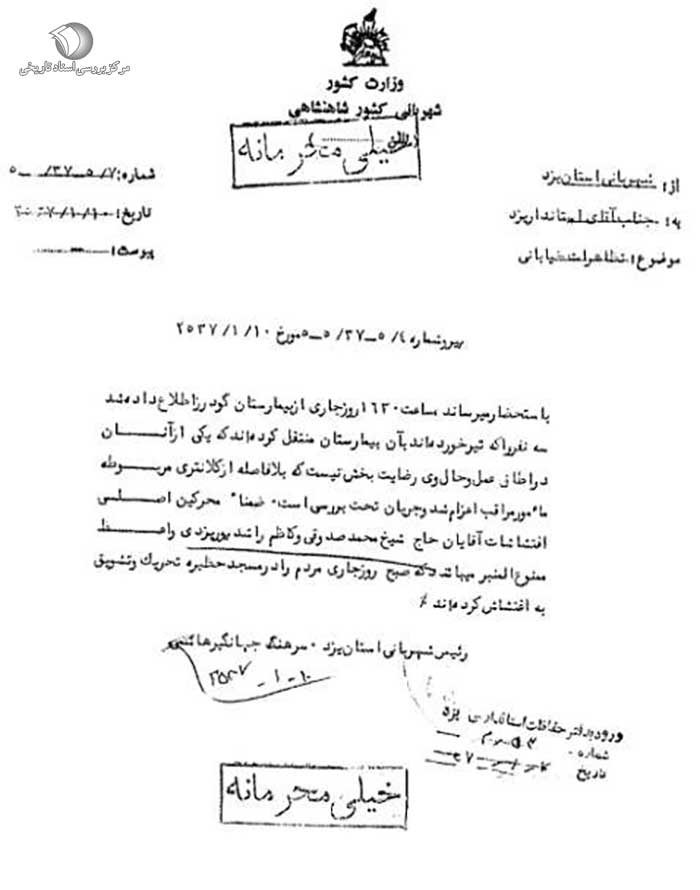 مرکز بررسی اسناد تاریخی
وزارت کشور
شهربانی کشور شاهنشاهی
خیلی محرمانه
از: شهربانی استان یزد
به: جناب آقای استاندار یزد
موضوع: تظاهرات خیابانی
شماره: ۵/۷-۳۷/-۵
تاریخ:
پیوست:
پیرو شماره ۵/۴-۳۷/۵-۵ مورخ ۲۵۳۷/۱/۱۰
باستحضار میرساند ساعت ۱۶۳۰ روز جاری از بیمارستان گودرز اطلاع داده شد
سه نفر را که تیر خورده‌اند بآن بیمارستان منتقل کرده‌اند که یکی از آنان
در اطاق عمل و حال وی رضایت بخش نیست که بلافاصله از کلانتری مربوطه
مأمور مراقب اعزام شد و جریان تحت بررسی است. ضمناً محرکین اصلی
اغتشاشات آقایان حاج شیخ محمد صدوقی و کاظم راشد پور یزدی واعظ
ممنوع المنبر میباشد که صبح روز جاری مردم را در مسجد حظیره تحریک و تشویق
به اغتشاش کرده‌اند /
رئیس شهربانی استان یزد . سرهنگ جهانگیر
۲۵۳۷-۱-۱۰
ورود بدفتر حفاظت استانداری یزد
شماره
تاریخ
خیلی محرمانه